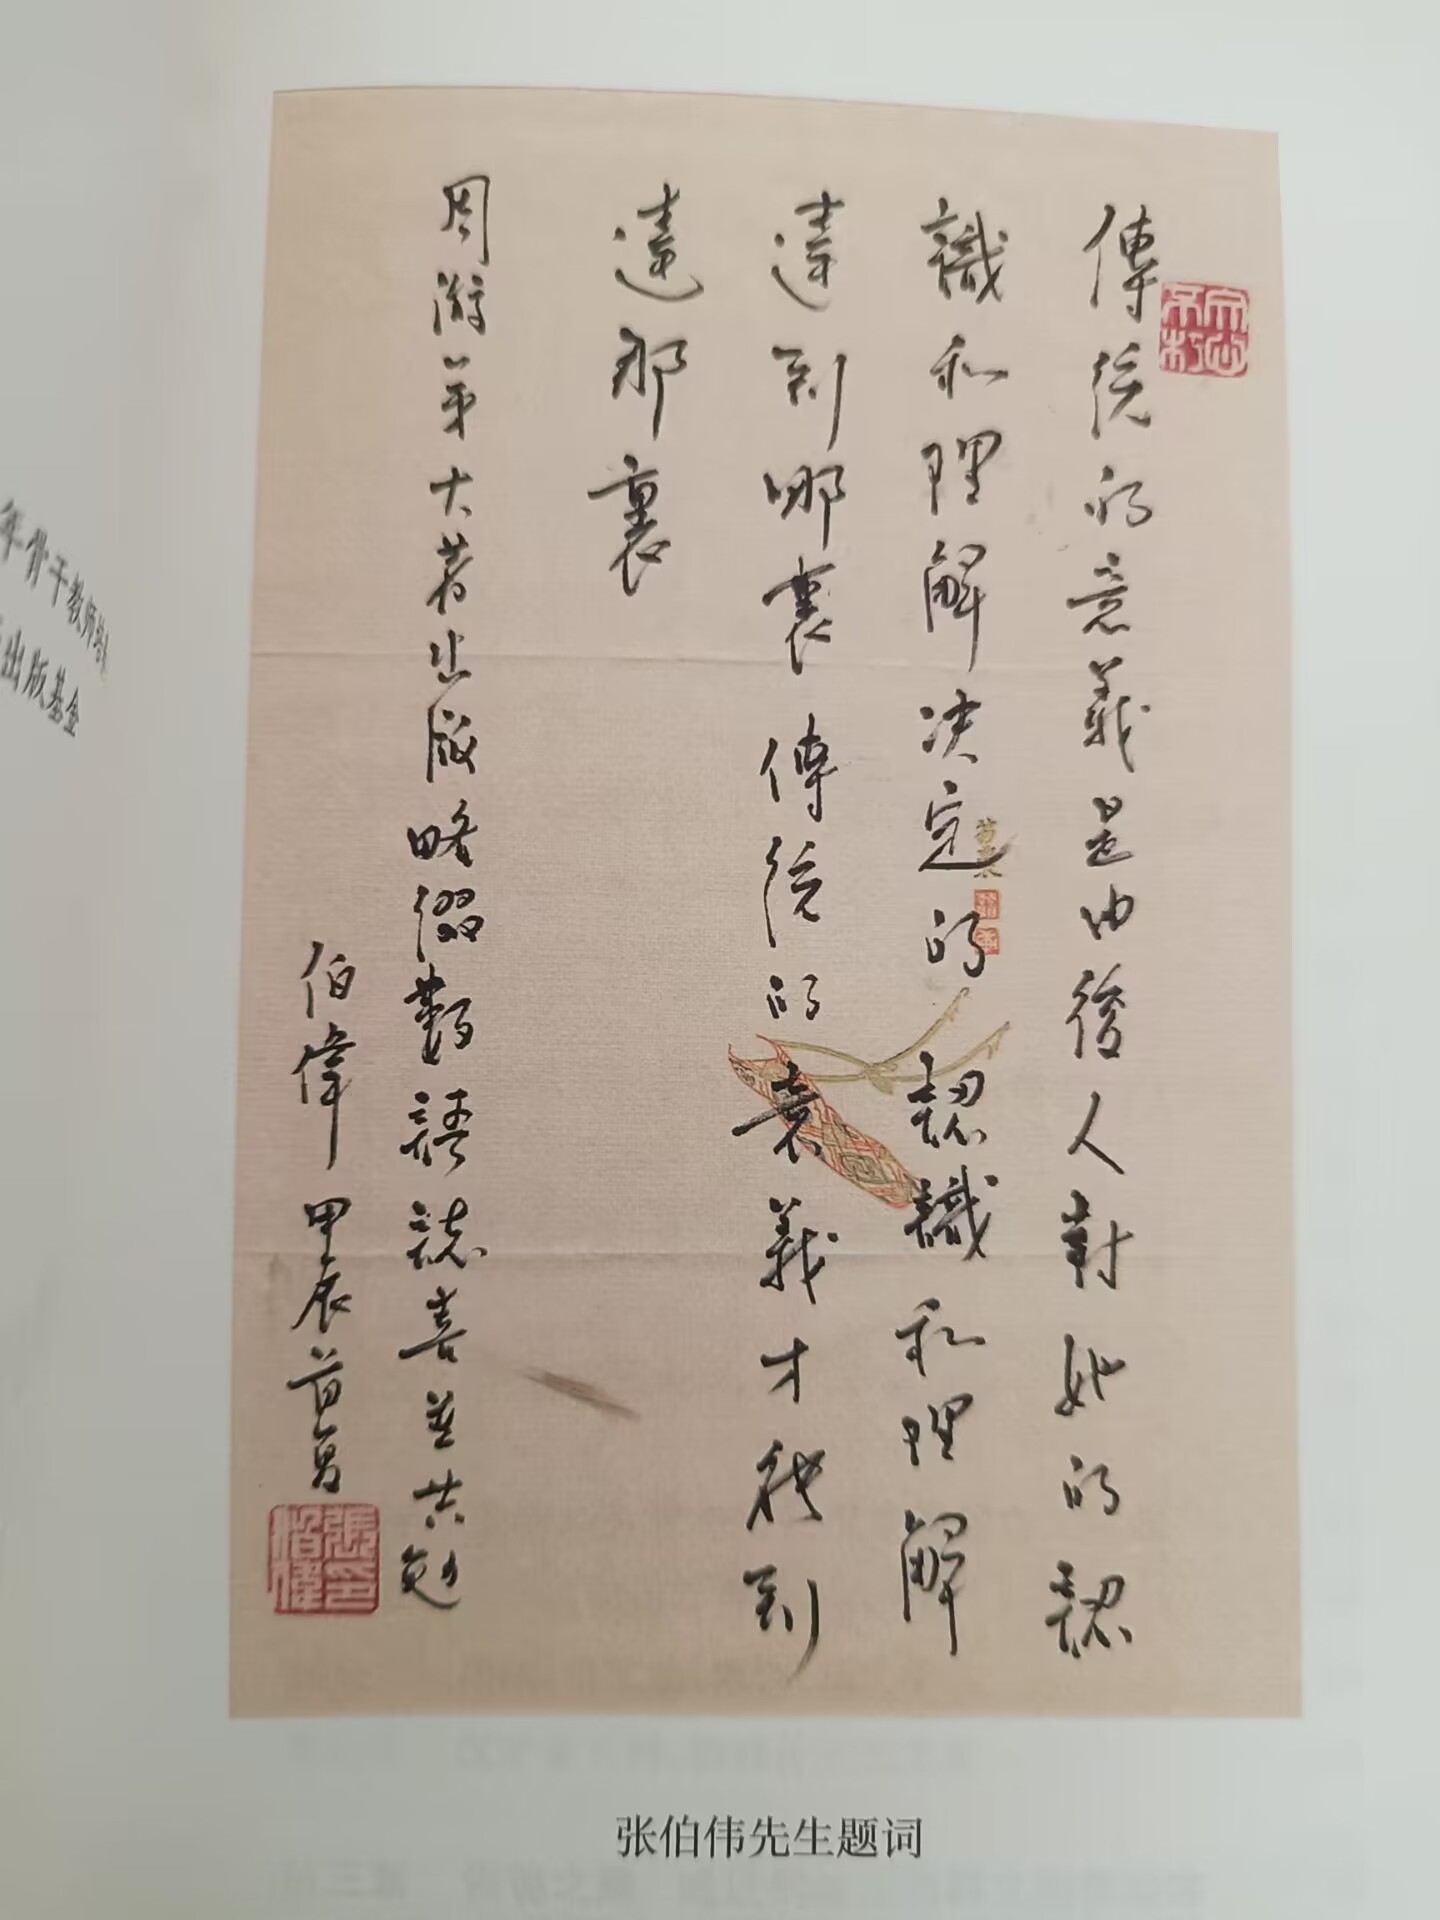 傳統的意義是由後人對她的認
識和理解決定的 認識和理解
達到哪裏 傳統的意義才能到
達那裏
周游弟大著出版略綴數語誌喜並共勉
伯偉 甲辰首夏
張伯偉印
张伯伟先生题词
年骨干教师
出版基金